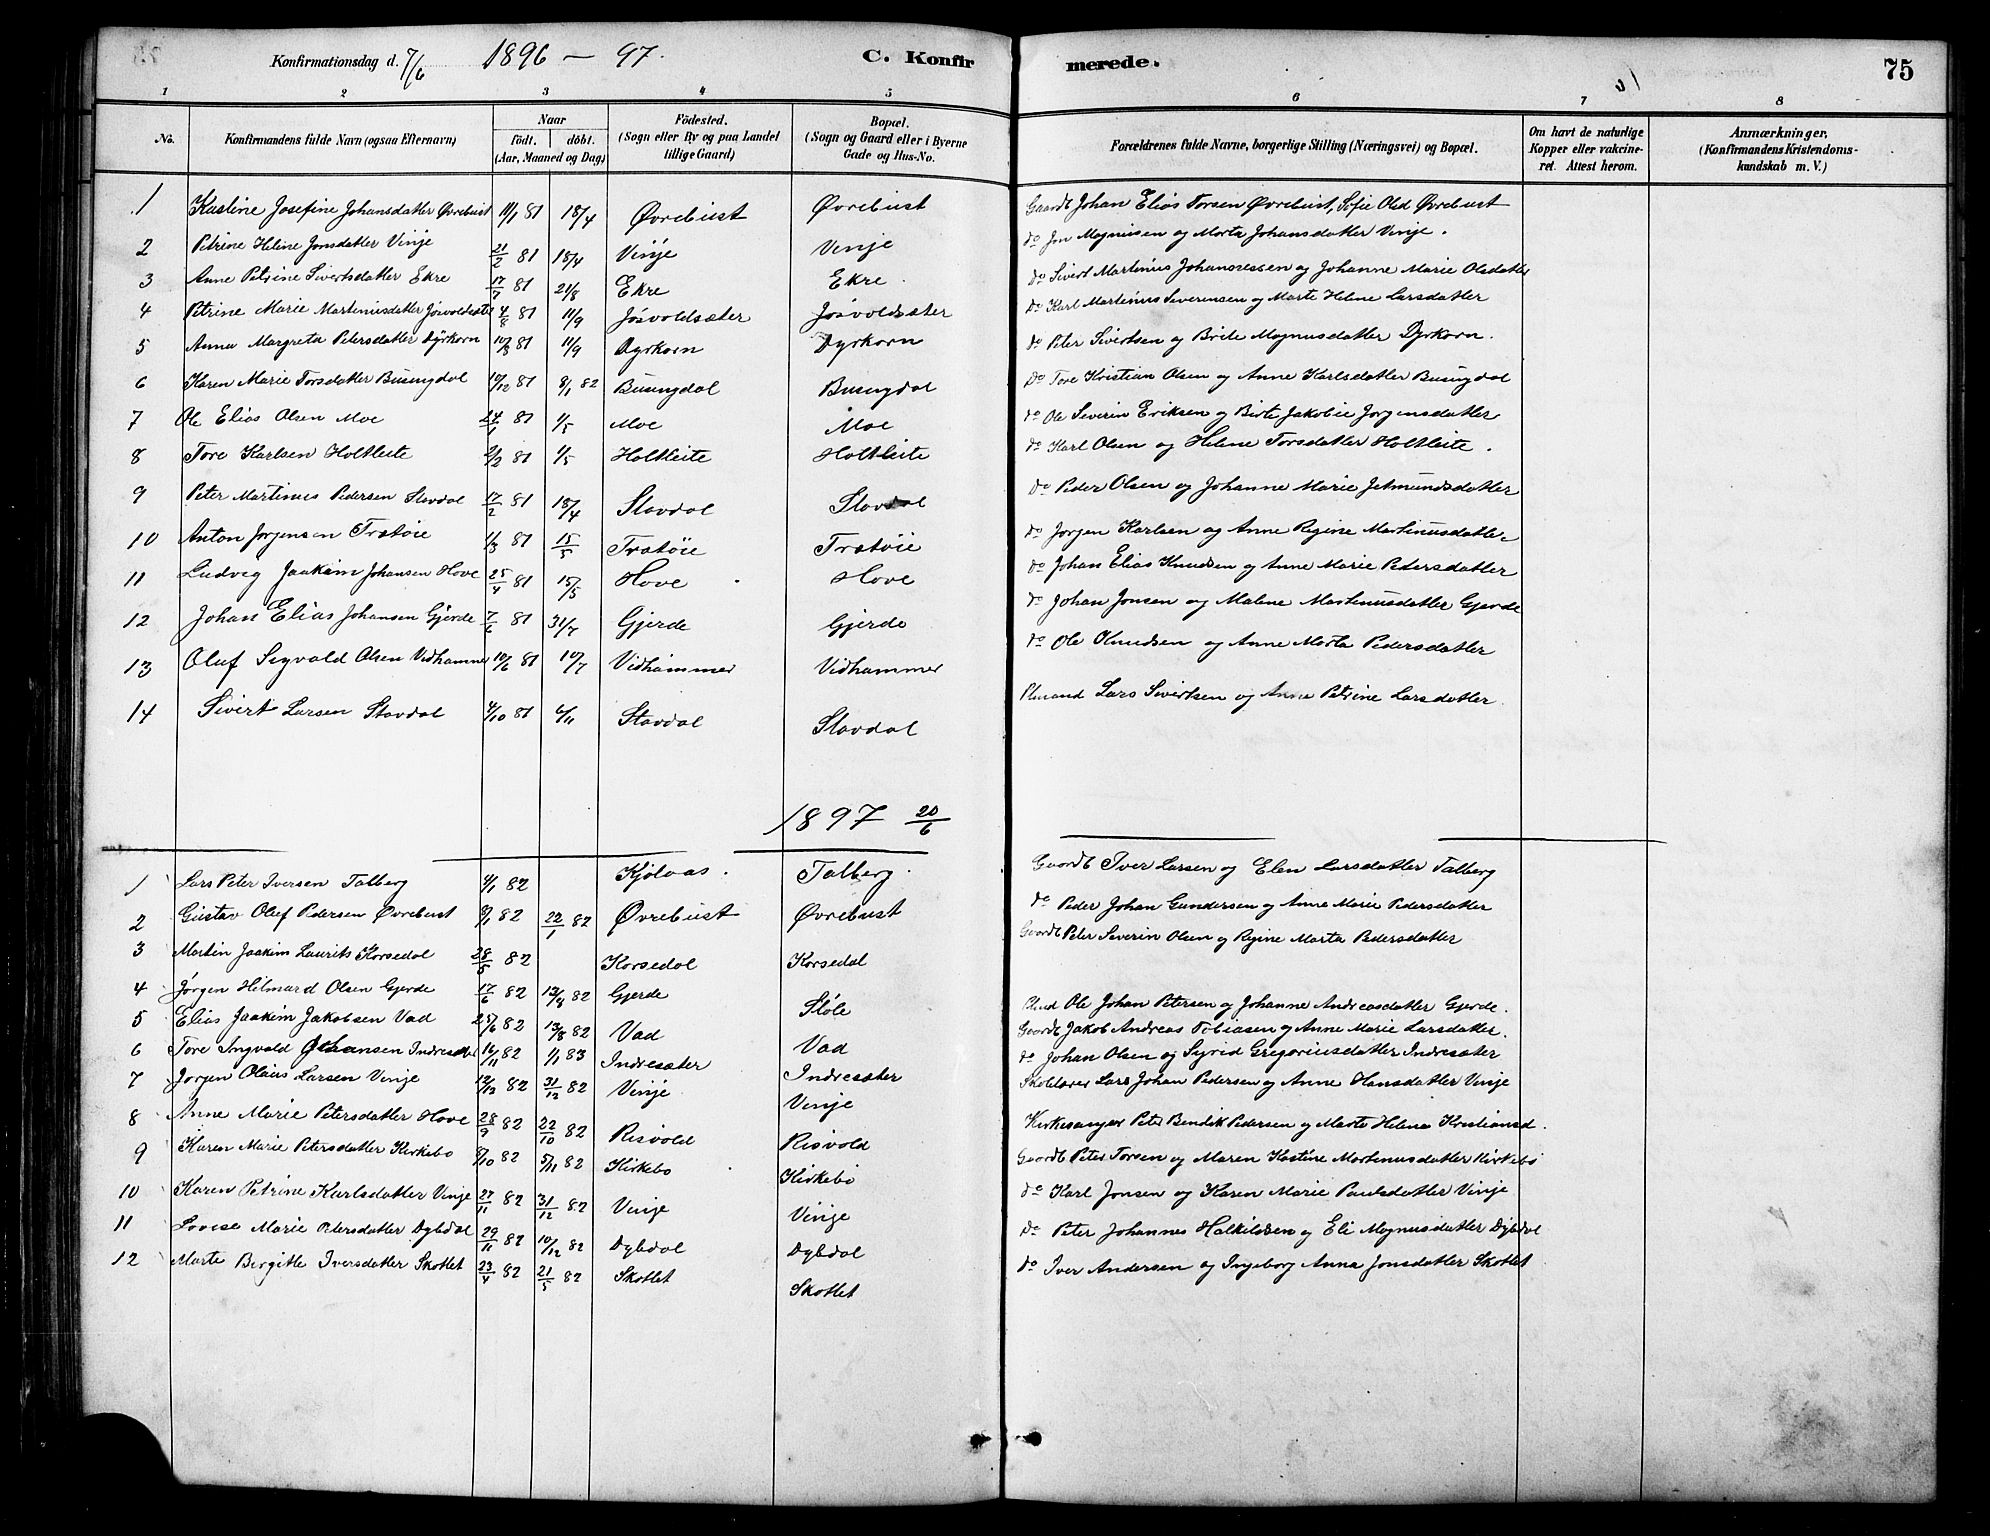 Konfirmationsdag d. 7/6 1896 — 97. C. Konfirmerede. 75
1 2 3 4 5 6 7 8
No. Konfirmandens fulde Navn (ogsaa Efternavn) Naar födt. döbt. (Aar, Maaned og Dag) Födested. (Sogn eller By og paa Landet tillige Gaard) Bopæl. (Sogn og Gaard eller i Byerne Gade og Hus-No. Forældrenes fulde Navne, borgerlige Stilling (Næringsvei) og Bopæl. Om havt de naturlige Kopper eller vakcineret. Attest herom. Anmærkninger, (Konfirmandens Kristendomskundskab m. V.)
1 Kastine Josefine Johansdatter Øvrebust 11/1 81 18/4 Øvrebust Øvrebust Gaardb Johan Elias Torsen Øvrebust, Sofie Olsd Øvrebust
2 Petrine Heline Jonsdatter Vinje 21/2 81 18/4 Vinje Vinje do Jon Magnusen og Marta Johansdatter Vinje.
3 Anne Petrine Sivertsdatter Ekre 17/7 81 21/8 Ekre Ekre do Sivert Martinus Johannessen og Johanne Marie Olsdatter
4 Petrine Marie Martinusdatter Jösvoldsæter 4/8 81 11/9 Jösvoldsæter Jösvoldsæter do Karl Martinus Severinsen og Marte Helene Larsdatter
5 Anna Margreta Petersdatter Dyrkorn 10/8 81 11/9 Dyrkorn Dyrkorn do Peter Sivertsen og Brite Magnusdatter Dyrkorn.
6 Karen Marie Torsdatter Busengdal 10/12 81 8/1 82 Busengdal Busengdal Do Tore Kristian Olsen og Anne Karlsdatter Busengdal
7 Ole Elias Olsen Moe 24/1 81 1/5 Moe Moe do Ole Severin Eriksen og Birte Jakobie Jorgensdatter
8 Tore Karlsen Holtleite 2/2 81 1/5 Holtleite Holtleite do Karl Olsen og Helene Torsdatter Holtleite.
9 Peter Martinus Pedersen Stavdal 17/2 81 18/4 Stavdal Stavdal do Peder Olsen og Johanne Marie Jetmundsdatter
10 Anton Jorgensen Trætöie 1/3 81 15/5 Trætöie Trætöie do Jorgen Karlsen og Anne Regine Martinusdatter
11 Ludvig Jaakim Johansen Hove 25/4 81 15/5 Hove Hove do Johan Elias Knudsen og Anne Marie Pedersdatter
12 Johan Elias Johansen Gjerde 7/6 81 31/7 Gjerde Gjerde do Johan Jonsen og Malene Martinusdatter Gjerde
13 Oluf Sigvald Olsen Vidhammer 10/6 81 10/7 Vidhammer Vidhammer do Ole Knudsen og Anne Marta Pedersdatter
14 Sivert Larsen Stavdal 4/10 81 6/11 Stavdal Stavdal Plmand Lars Sivertsen og Anne Petrine Larsdatter.
1897 20/6
1 Lars Peter Iversen Talberg 4/1 82 Kjölaas. Talberg. Gaardb Iver Larsen og Elen Larsdatter Talberg
2 Gustav Oluf Pedersen Øvrebust 9/1 82 22/1 82 Øvrebust Øvrebust do Peder Johan Gundersen og Anne Marie Pedersdatter
3 Martin Jaakim Laurits Korsedal 28/5 82 Korsedal Korsedal Gaardb Peter Severin Olsen og Regine Marta Pedersdatter
4 Jörgen Hilmard Olsen Gjerde 17/6 82 13/8 82 Gjerde Støle Plmd Ole Johan Petersen og Johanne Andreasdatter Gjerde.
5 Elias Jaakim Jakobsen Vad 25/6 82 13/8 82 Vad Vad Gaardb Jakob Andreas Tobiasen og Anne Marie Larsdatter.
6 Tore Ingvald Johansen Indresæter 16/11 82 1/1 83 Indresæter Indresæter do Johan Olsen og Syrid Gregoriusdatter Indresæter
7 Jorgen Olaus Larsen Vinje 12/12 82 31/12 82 Vinje Vinje Skolelærer Lars Johan Pedersen og Anne Hansdatter Vinje
8 Anne Marie Petersdatter Hove 28/9 82 22/10 82 Risvold Risvold Kirkesanger Peter Bendik Pedersen og Marte Helena Kristiansd.
9 Karen Marie Petersdatter Kirkebö 8/10 82 5/11 82 Kirkebö Kirkebö Gaardb Peter Torsen og Maren Kastine Martinusdatter Kirkebö
10 Karen Petrine Karlsdatter Vinje 27/11 82 31/12 82 Vinje Vinje do Karl Jonsen og Karen Marie Paulsdatter Vinje
11 Lovise Marie Petersdatter Dybdal 29/11 82 10/12 82 Dybdal Dybdal Do Peter Johannes Halkildsen og Eli Magnusdatter Dybdal
12 Marte Birgitte Iversdatter Skotlet 23/4 82 21/5 82 Skotlet Skotlet do Iver Andersen og Ingeborg Anna Jonsdatter Skotlet